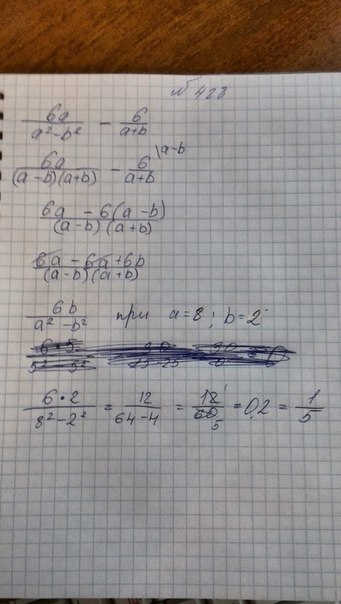 № 428
6a/(a²-b²) - 6/(a+b)
6a/((a-b)(a+b)) - 6/(a+b) \a-b
(6a - 6(a-b))/((a-b)(a+b))
(6a - 6a + 6b)/((a-b)(a+b))
6b/(a²-b²) при a=8; b=2
(6·2)/(8²-2²) = 12/(64-4) = 12/60 1/5 = 0,2 = 1/5